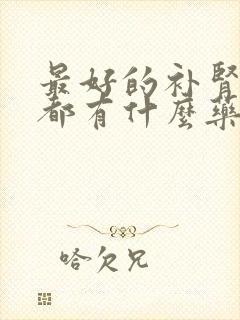 最好的补肾
都有什麽药
哈欠兄